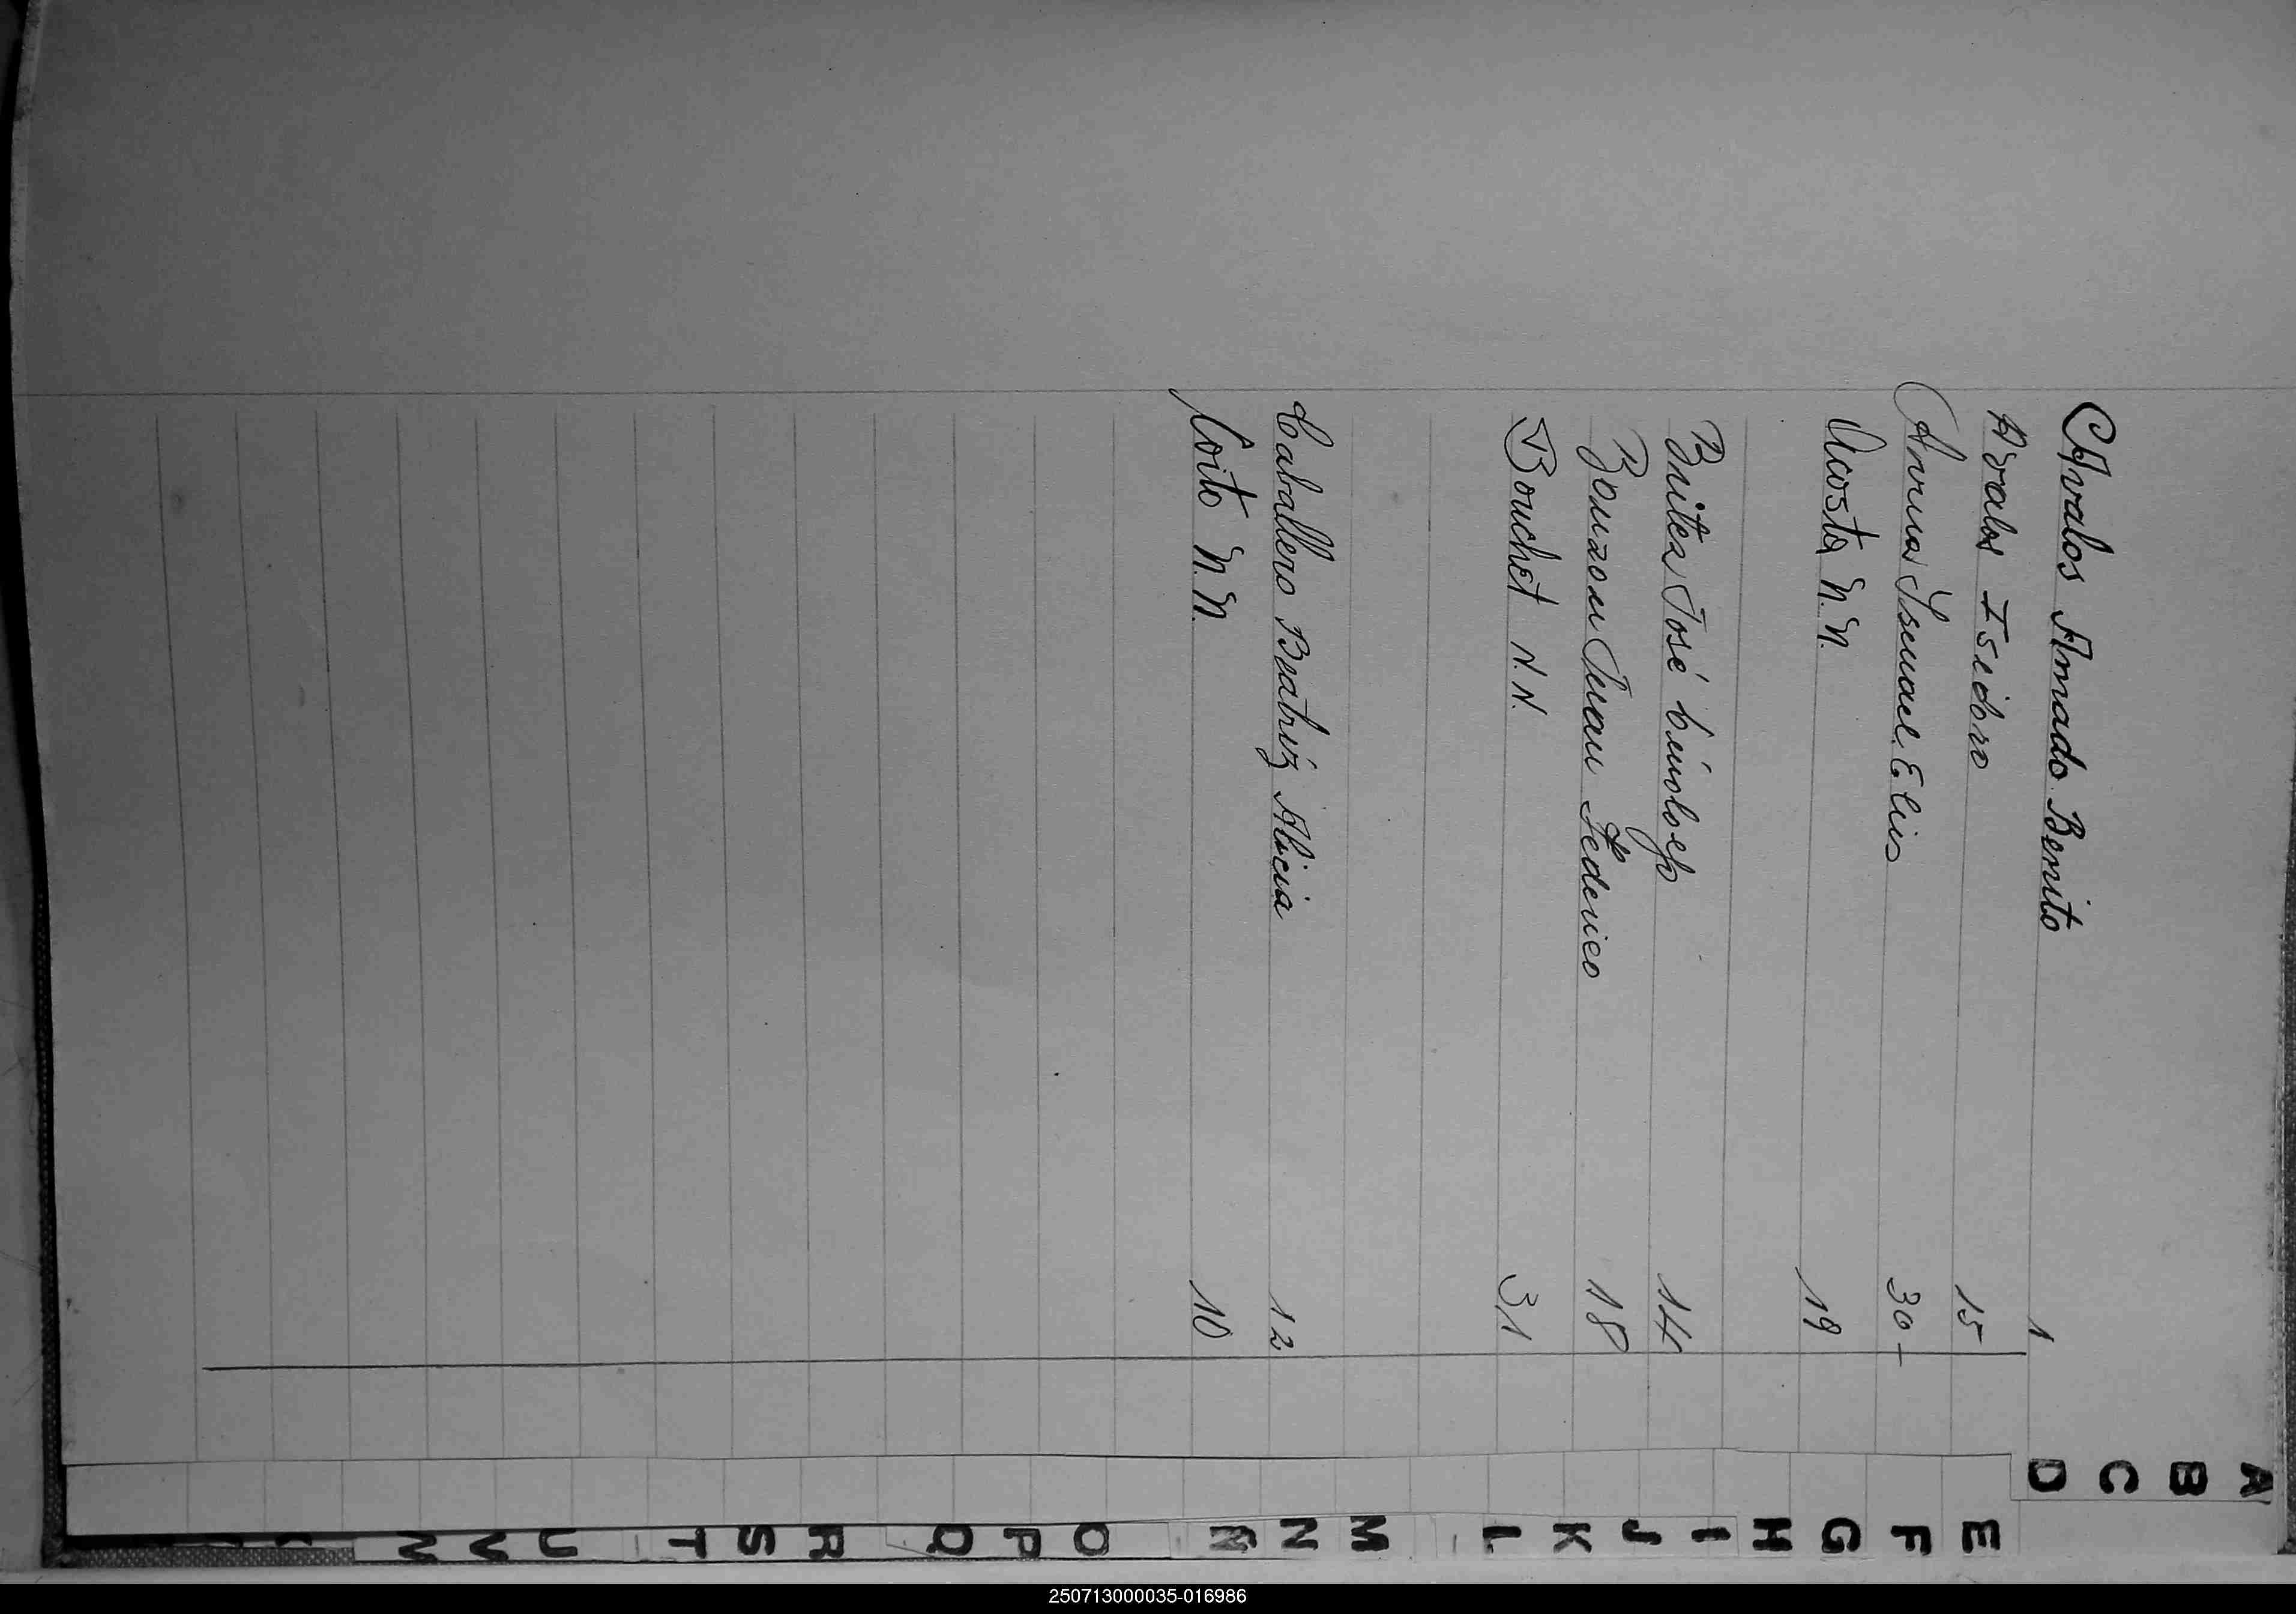 Avalos Amado Benito 1
Avalos Isidoro 15
Ismael Elias 30-
Acosta N.N. 19
Britez José 14
Bouzon Juan Federico 18
Bouchet N.N. 31
Caballero Beatríz Alicia 12
Coito N.N. 10
A
B
C
D
E
F
G
H
I
J
K
L
M
N
O
P
Q
R
S
T
U
V
250713000035-016986